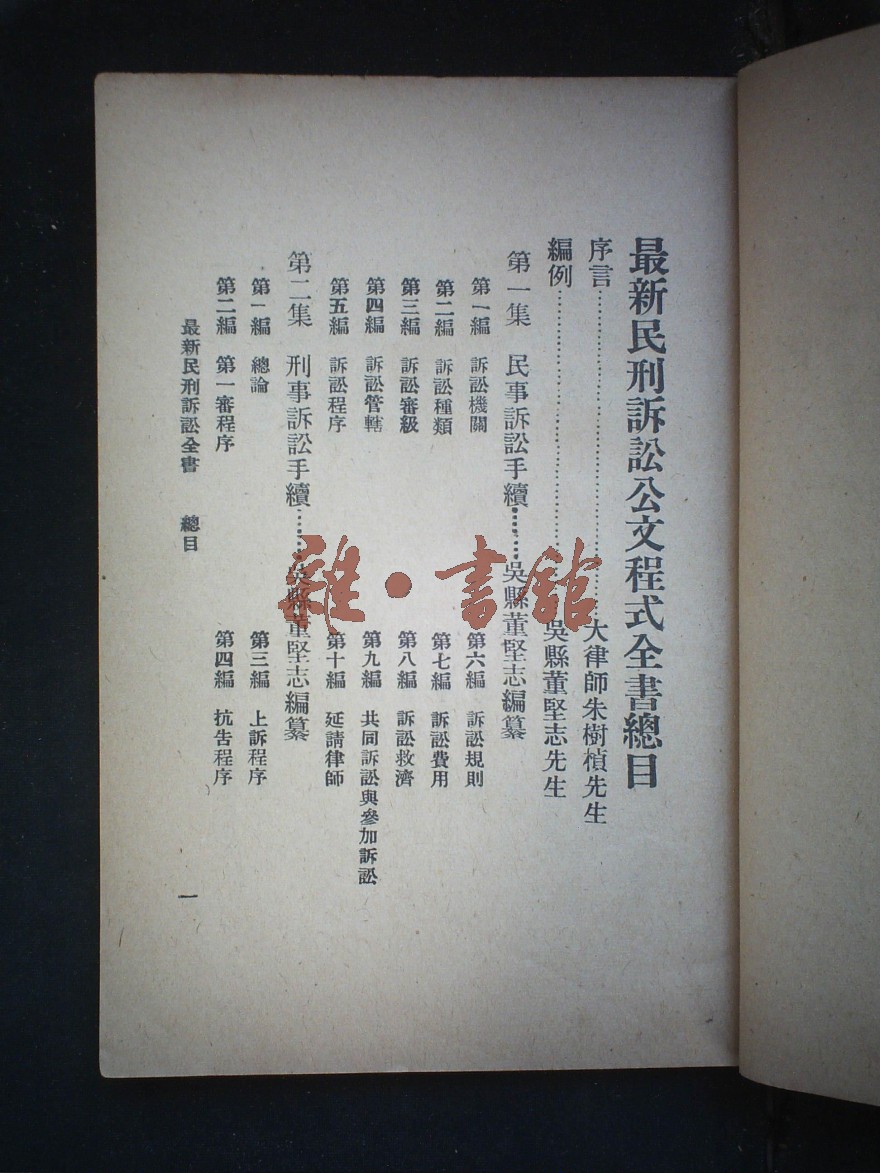 最新民刑訴訟公文程式全書總目
序言……大律師朱樹楨先生
編例……吳縣董堅志先生
第一集 民事訴訟手續……吳縣董堅志編纂
第一編 訴訟機關 第六編 訴訟規則
第二編 訴訟種類 第七編 訴訟費用
第三編 訴訟審級 第八編 訴訟救濟
第四編 訴訟管轄 第九編 共同訴訟與參加訴訟
第五編 訴訟程序 第十編 延請律師
第二集 刑事訴訟手續……吳縣董堅志編纂
第一編 總論 第三編 上訴程序
第二編 第一審程序 第四編 抗告程序
最新民刑訴訟全書 總目 一
雜·書館